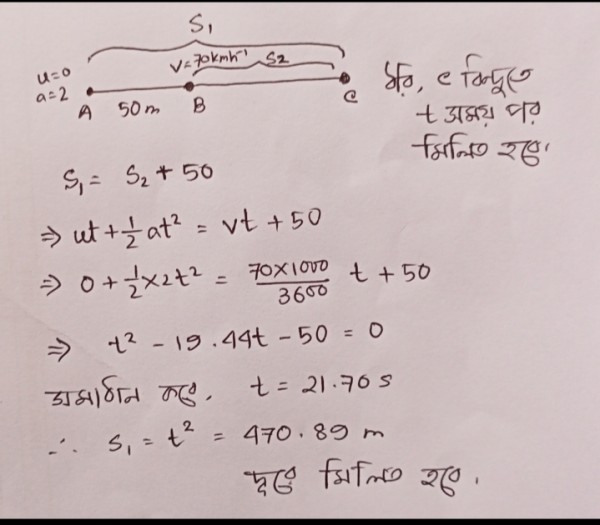 S₁
V=70kmh⁻¹ S₂
u=0
a=2
A 50m B C
ধরি, C বিন্দুতে
t সময় পর
মিলিত হবে।
S₁ = S₂ + 50
⇒ ut + ½ at² = vt + 50
⇒ 0 + ½ × 2t² = 70×1000/3600 t + 50
⇒ t² - 19.44t - 50 = 0
সমাধান করে, t = 21.70 s
∴ S₁ = t² = 470.89 m
দূরে মিলিত হবে।